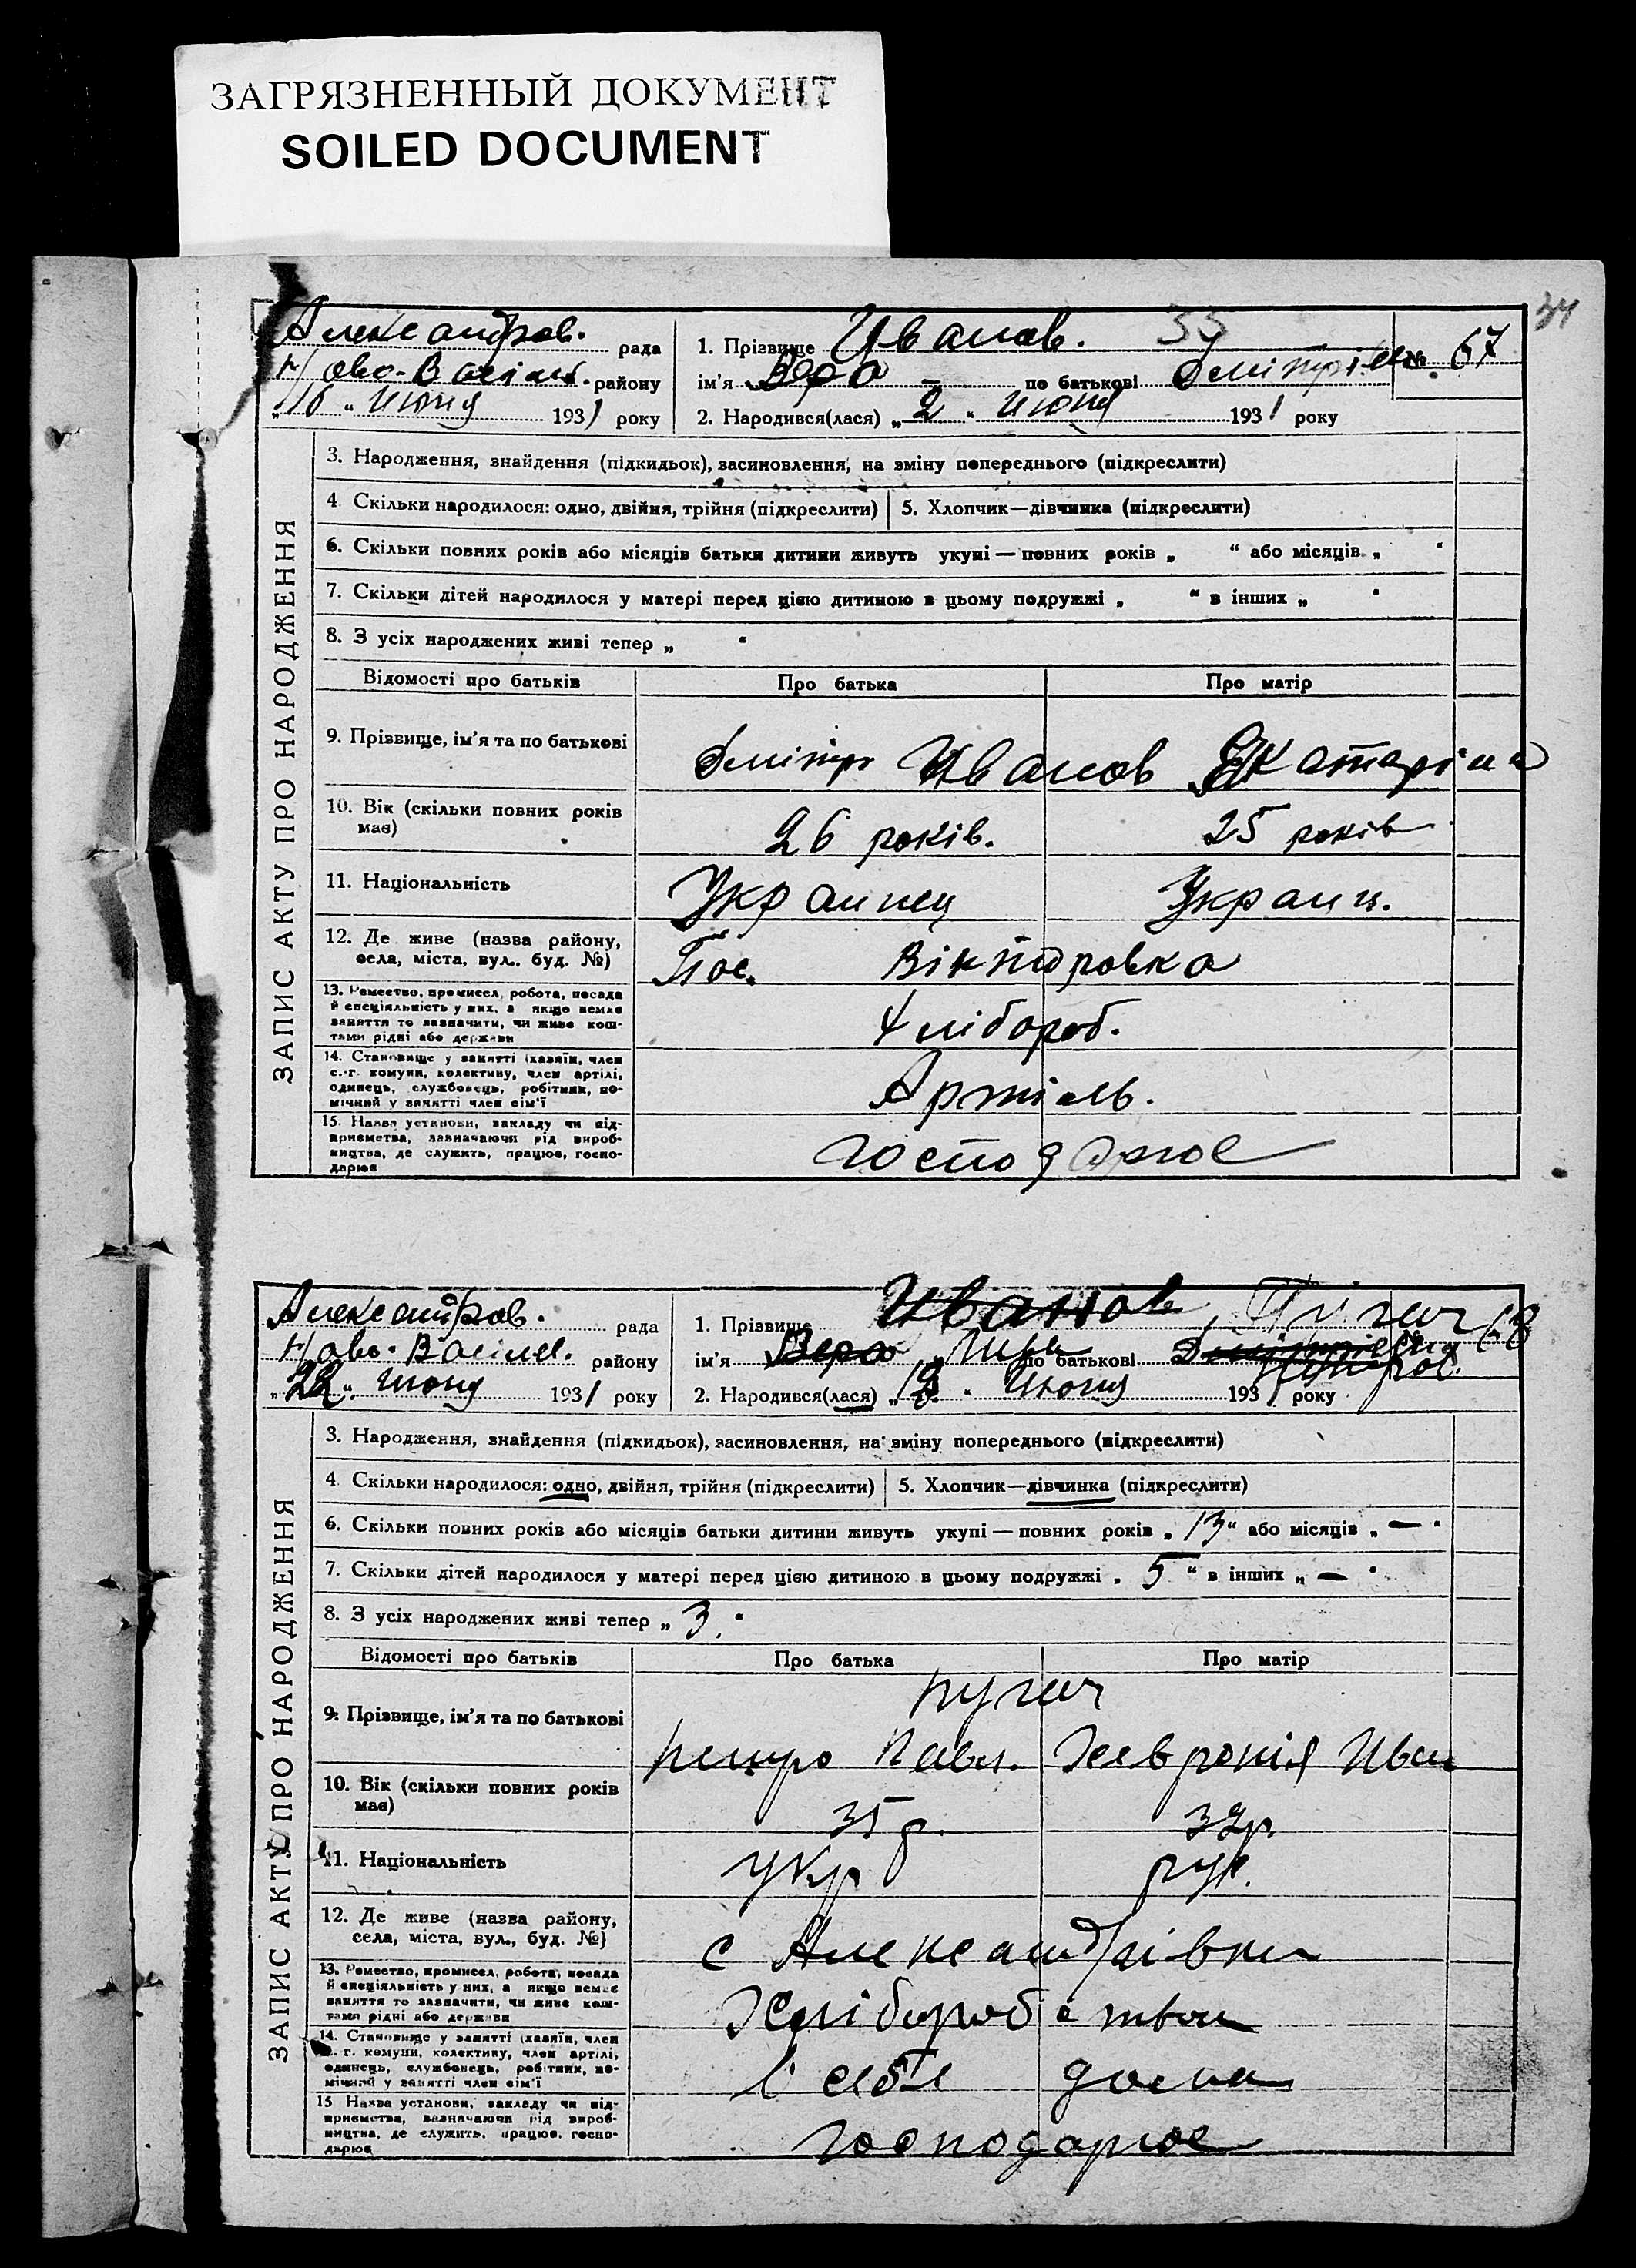 ЗАГРЯЗНЕННЫЙ ДОКУМЕНТ
SOILED DOCUMENT
34
Александров. рада
Ново-Васілів. району
„16“ Июня 1931 року
1. Прізвище Иванов. 33
ім'я Вера по батькові Дмітрієв. № 67
2. Народився(лася) „2“ Июня 1931 року
ЗАПИС АКТУ ПРО НАРОДЖЕННЯ
3. Народження, знайдення (підкидьок), засиновлення, на зміну попереднього (підкреслити)
4 Скільки народилося: одно, двійня, трійня (підкреслити) 5. Хлопчик—дівчинка (підкреслити)
6. Скільки повних років або місяців батьки дитини живуть укупі — повних років „ “ або місяців „ “
7. Скільки дітей народилося у матері перед цією дитиною в цьому подружжі „ “ в інших „ “
8. З усіх народжених живі тепер „ “
Відомості про батьків Про батька Про матір
9. Прізвище, ім'я та по батькові Дмітр Иванов Екатеріна
10. Вік (скільки повних років має) 26 років. 25 років
11. Національність Украинец Украин.
12. Де живе (назва району, села, міста, вул., буд. №) Пос. Вікторовка
13. Ремество, промисел, робота, посада й спеціяльність у них, а якщо немає заняття то зазначити, чи живе коштами рідні або держави Хлібороб.
14. Становище у занятті (хазяїн, член с.-г. комуни, колективу, член артілі, одинець, службовець, робітник, помічний у занятті член сім'ї Артіль.
15. Назва установи, закладу чи підприємства, зазначаючи рід виробництва, де служить, працює, господарює господарює
Александров. рада
Ново-Васілів. району
„22“ июня 1931 року
1. Прізвище Иванов Пугач
ім'я Вера по батькові Дмітрієвна Петров. № 68
2. Народився(лася) „ “ Июня 1931 року
ЗАПИС АКТУ ПРО НАРОДЖЕННЯ
3. Народження, знайдення (підкидьок), засиновлення, на зміну попереднього (підкреслити)
4 Скільки народилося: одно, двійня, трійня (підкреслити) 5. Хлопчик—дівчинка (підкреслити)
6. Скільки повних років або місяців батьки дитини живуть укупі — повних років „13“ або місяців „—“
7. Скільки дітей народилося у матері перед цією дитиною в цьому подружжі „5“ в інших „—“
8. З усіх народжених живі тепер „3“
Відомості про батьків Про батька Про матір
Пугач
9. Прізвище, ім'я та по батькові Петро Павл. Хевронія Иван
10. Вік (скільки повних років має) 35 р. 32 р.
11. Національність укр рус.
12. Де живе (назва району, села, міста, вул., буд. №) с Александрівка
13. Ремество, промисел, робота, посада й спеціяльність у них, а якщо немає заняття то зазначити, чи живе коштами рідні або держави Хліборобство
14. Становище у занятті (хазяїн, член с.-г. комуни, колективу, член артілі, одинець, службовець, робітник, помічний у занятті член сім'ї У себе дома
15 Назва установи, закладу чи підприємства, зазначаючи рід виробництва, де служить, працює, господарює господарює